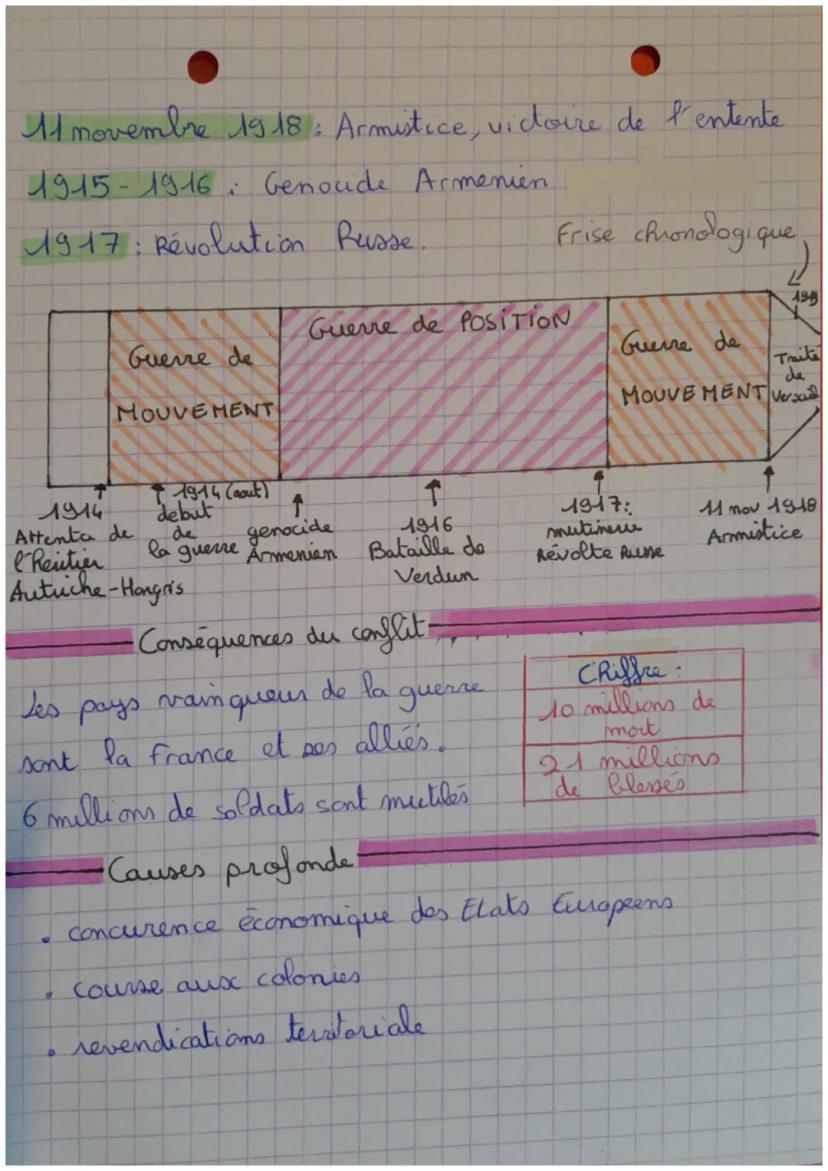 11 novembre 1918 : Armistice, victoire de l'entente
1915-1916 : Genocide Armenien
1917 : Révolution Russe.
Frise chronologique
1919
Guerre de
MOUVEMENT
Guerre de POSITION
Guerre de
MOUVEMENT
Traité
de
Versail
1914
Attenta de
l'héritier
Autriche-Hongris
1914 (aout)
debut
de
la guerre
genocide
Armenien
1916
Bataille de
Verdun
1917:
mutinerie
Révolte Russe
11 nov 1918
Armistice
Conséquences du conflit
Les pays vainqueur de la guerre
sont la france et ses alliés.
6 millions de soldats sont mutilés
Chiffre :
10 millions de
mort
21 millions
de blessés
Causes profonde
• concurence économique des Etats Européens
• course aux colonies
• revendications territoriale